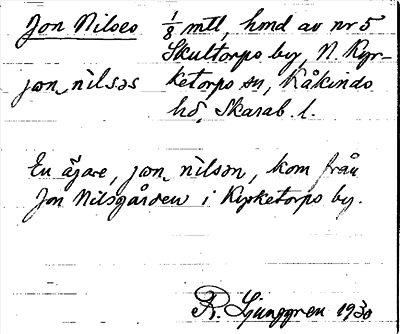 Jon Nilses 1/8 mtl, hmd av nr 5
Skultorps by, N. Kyr-
jɷn nìlsəs ketorps sn, Kåkinds
hd, Skarab. l.
En ägare, jɷn nìlsən, kom från
Jon Nilsgården i Kyrketorps by.
R. Ljunggren 1930